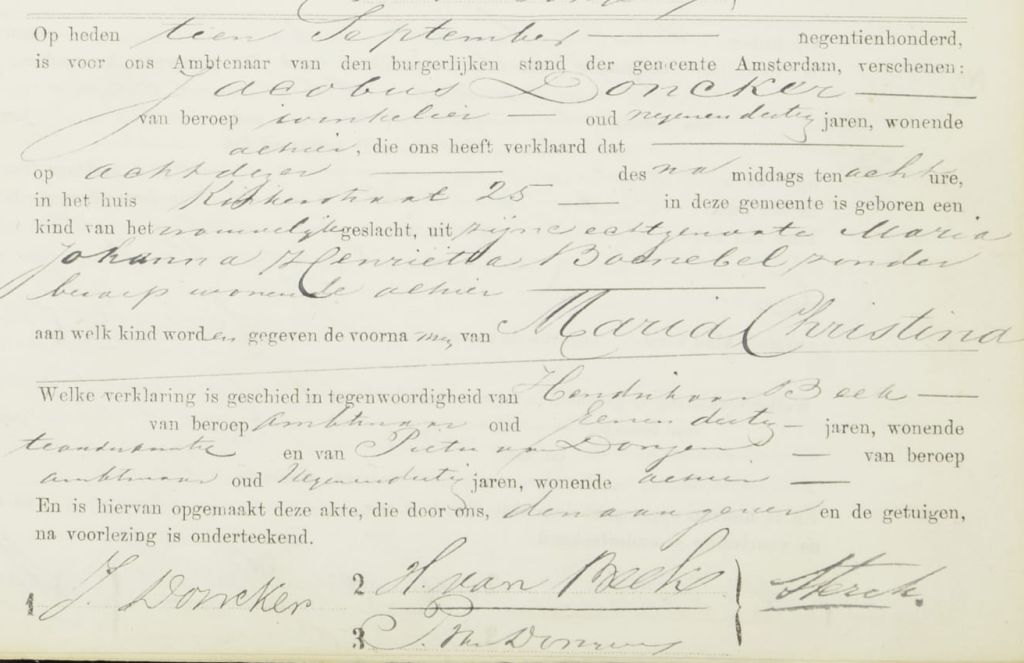 Op heden tien September negentienhonderd,
is voor ons Ambtenaar van den burgerlijken stand der gemeente Amsterdam, verschenen:
Jacobus Doncker
van beroep winkelier oud negenendertig jaren, wonende
alhier, die ons heeft verklaard dat
op acht dezer des na middags ten acht ure,
in het huis 25 in deze gemeente is geboren een
kind van het vrouwelijk geslacht, uit zijne echtgenoote Maria
Johanna Henrietta Boonebel zonder
beroep wonende alhier
aan welk kind worden gegeven de voornamen van Maria Christina
Welke verklaring is geschied in tegenwoordigheid van Hendrik van Beek
van beroep ambtenaar oud eenendertig jaren, wonende
en van Pieter van Dongen van beroep
ambtenaar oud negenendertig jaren, wonende alhier
En is hiervan opgemaakt deze akte, die door ons, den aangever en de getuigen,
na voorlezing is onderteekend.
1 J. Doncker 2 H. van Beek Sterck.
3 P. v. Dongen